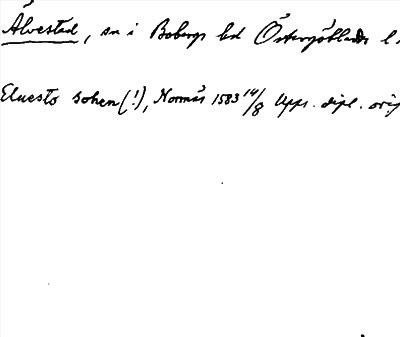 Älvestad, sn i Bobergs hd Östergötlands l.
Eluesto sohen (!), Normås 1583 14/8 Upps. dipl. orig